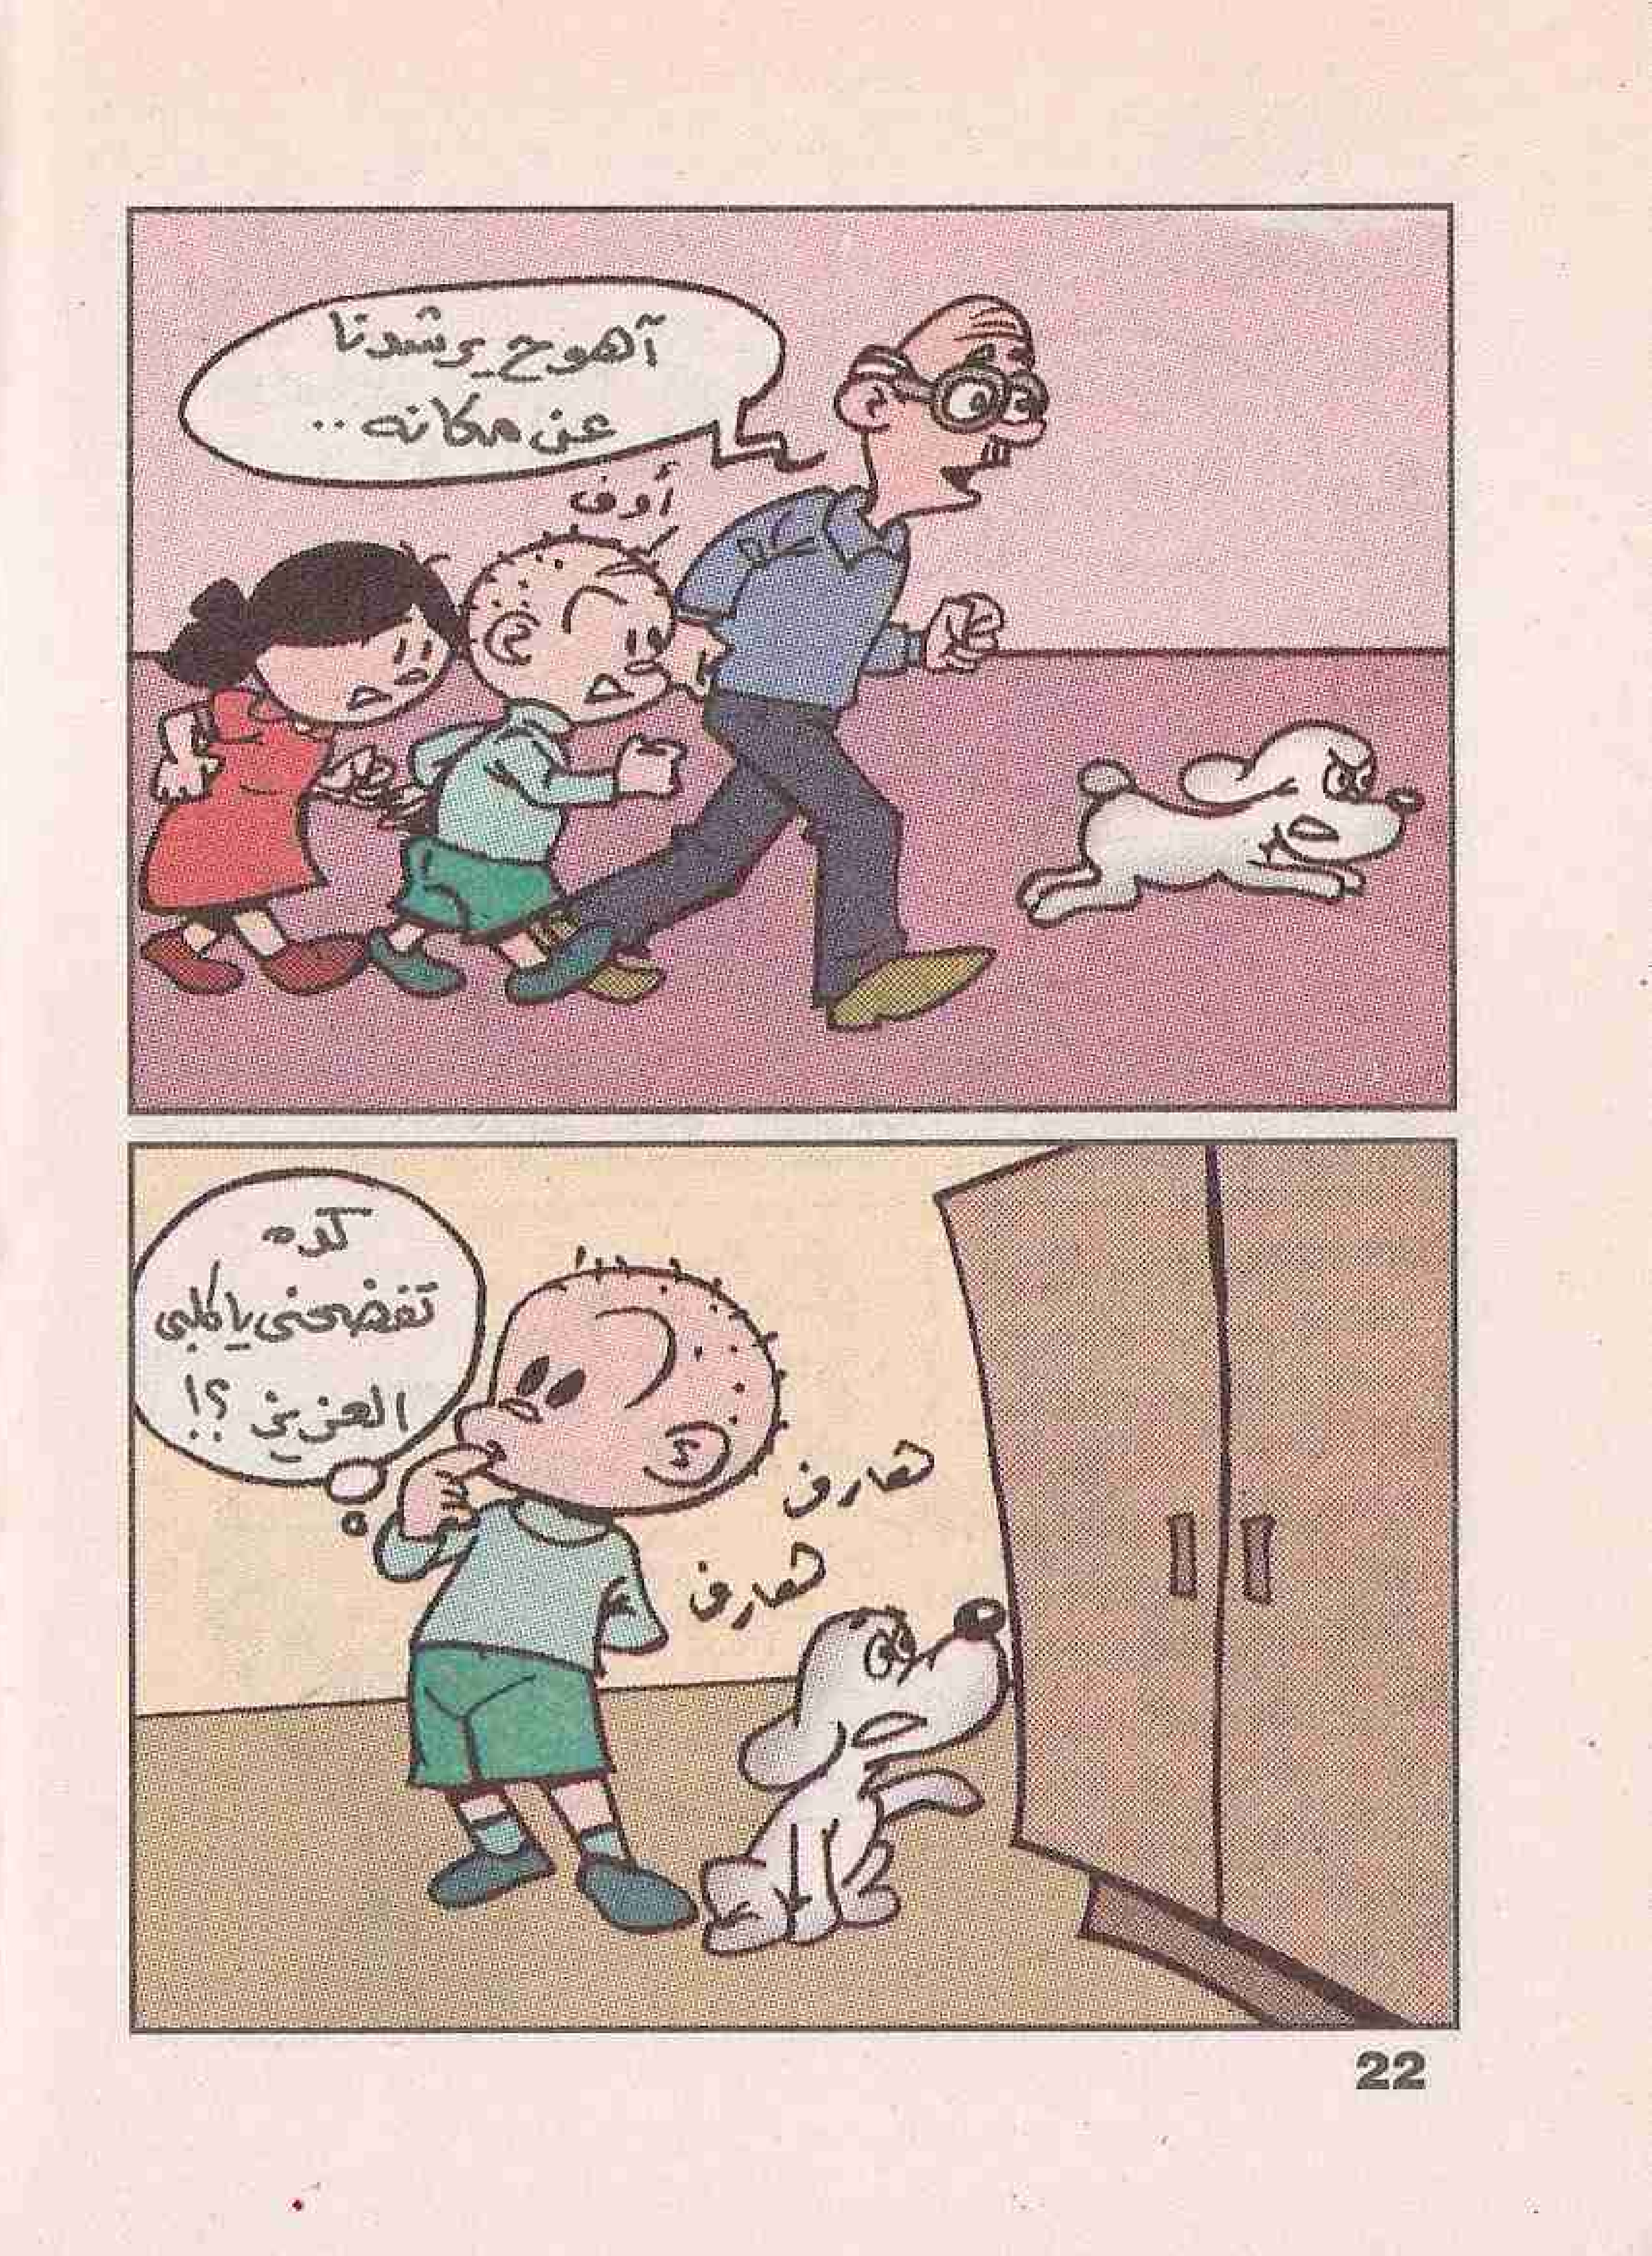 آهوح يرشدنا
عن مكانه ..
أوف
كده
تفضحنى يا كلبى
العزيز ؟!
هارف
هارف
22